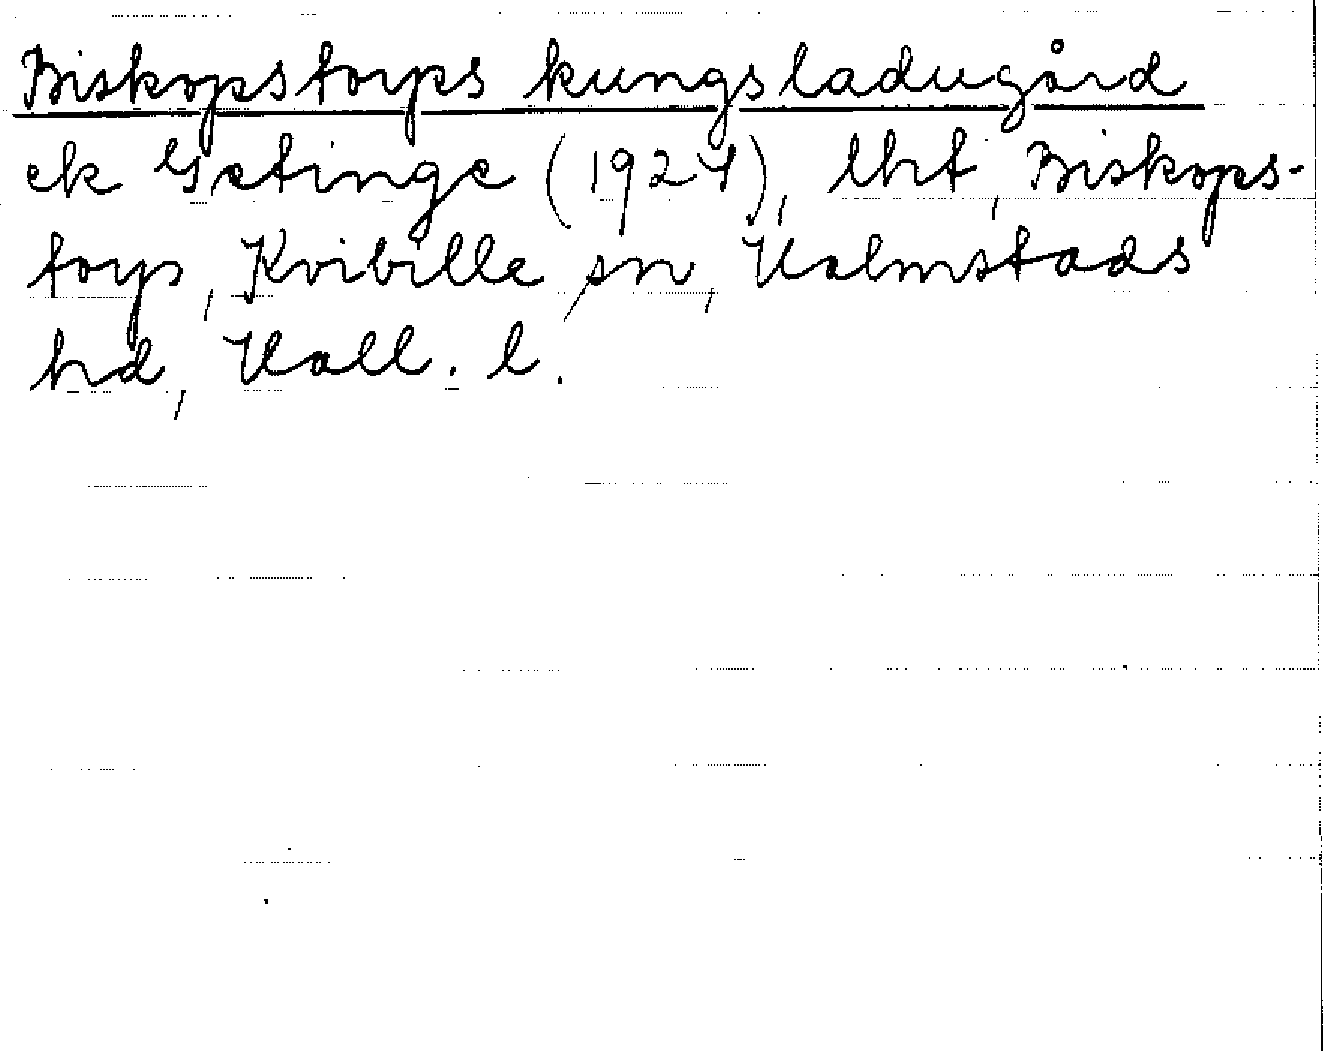 Biskopstorps kungsladugård
ek Getinge (1924), lht, Biskops-
torp, Kvibille sn, Halmstads
hd, Hall. l.